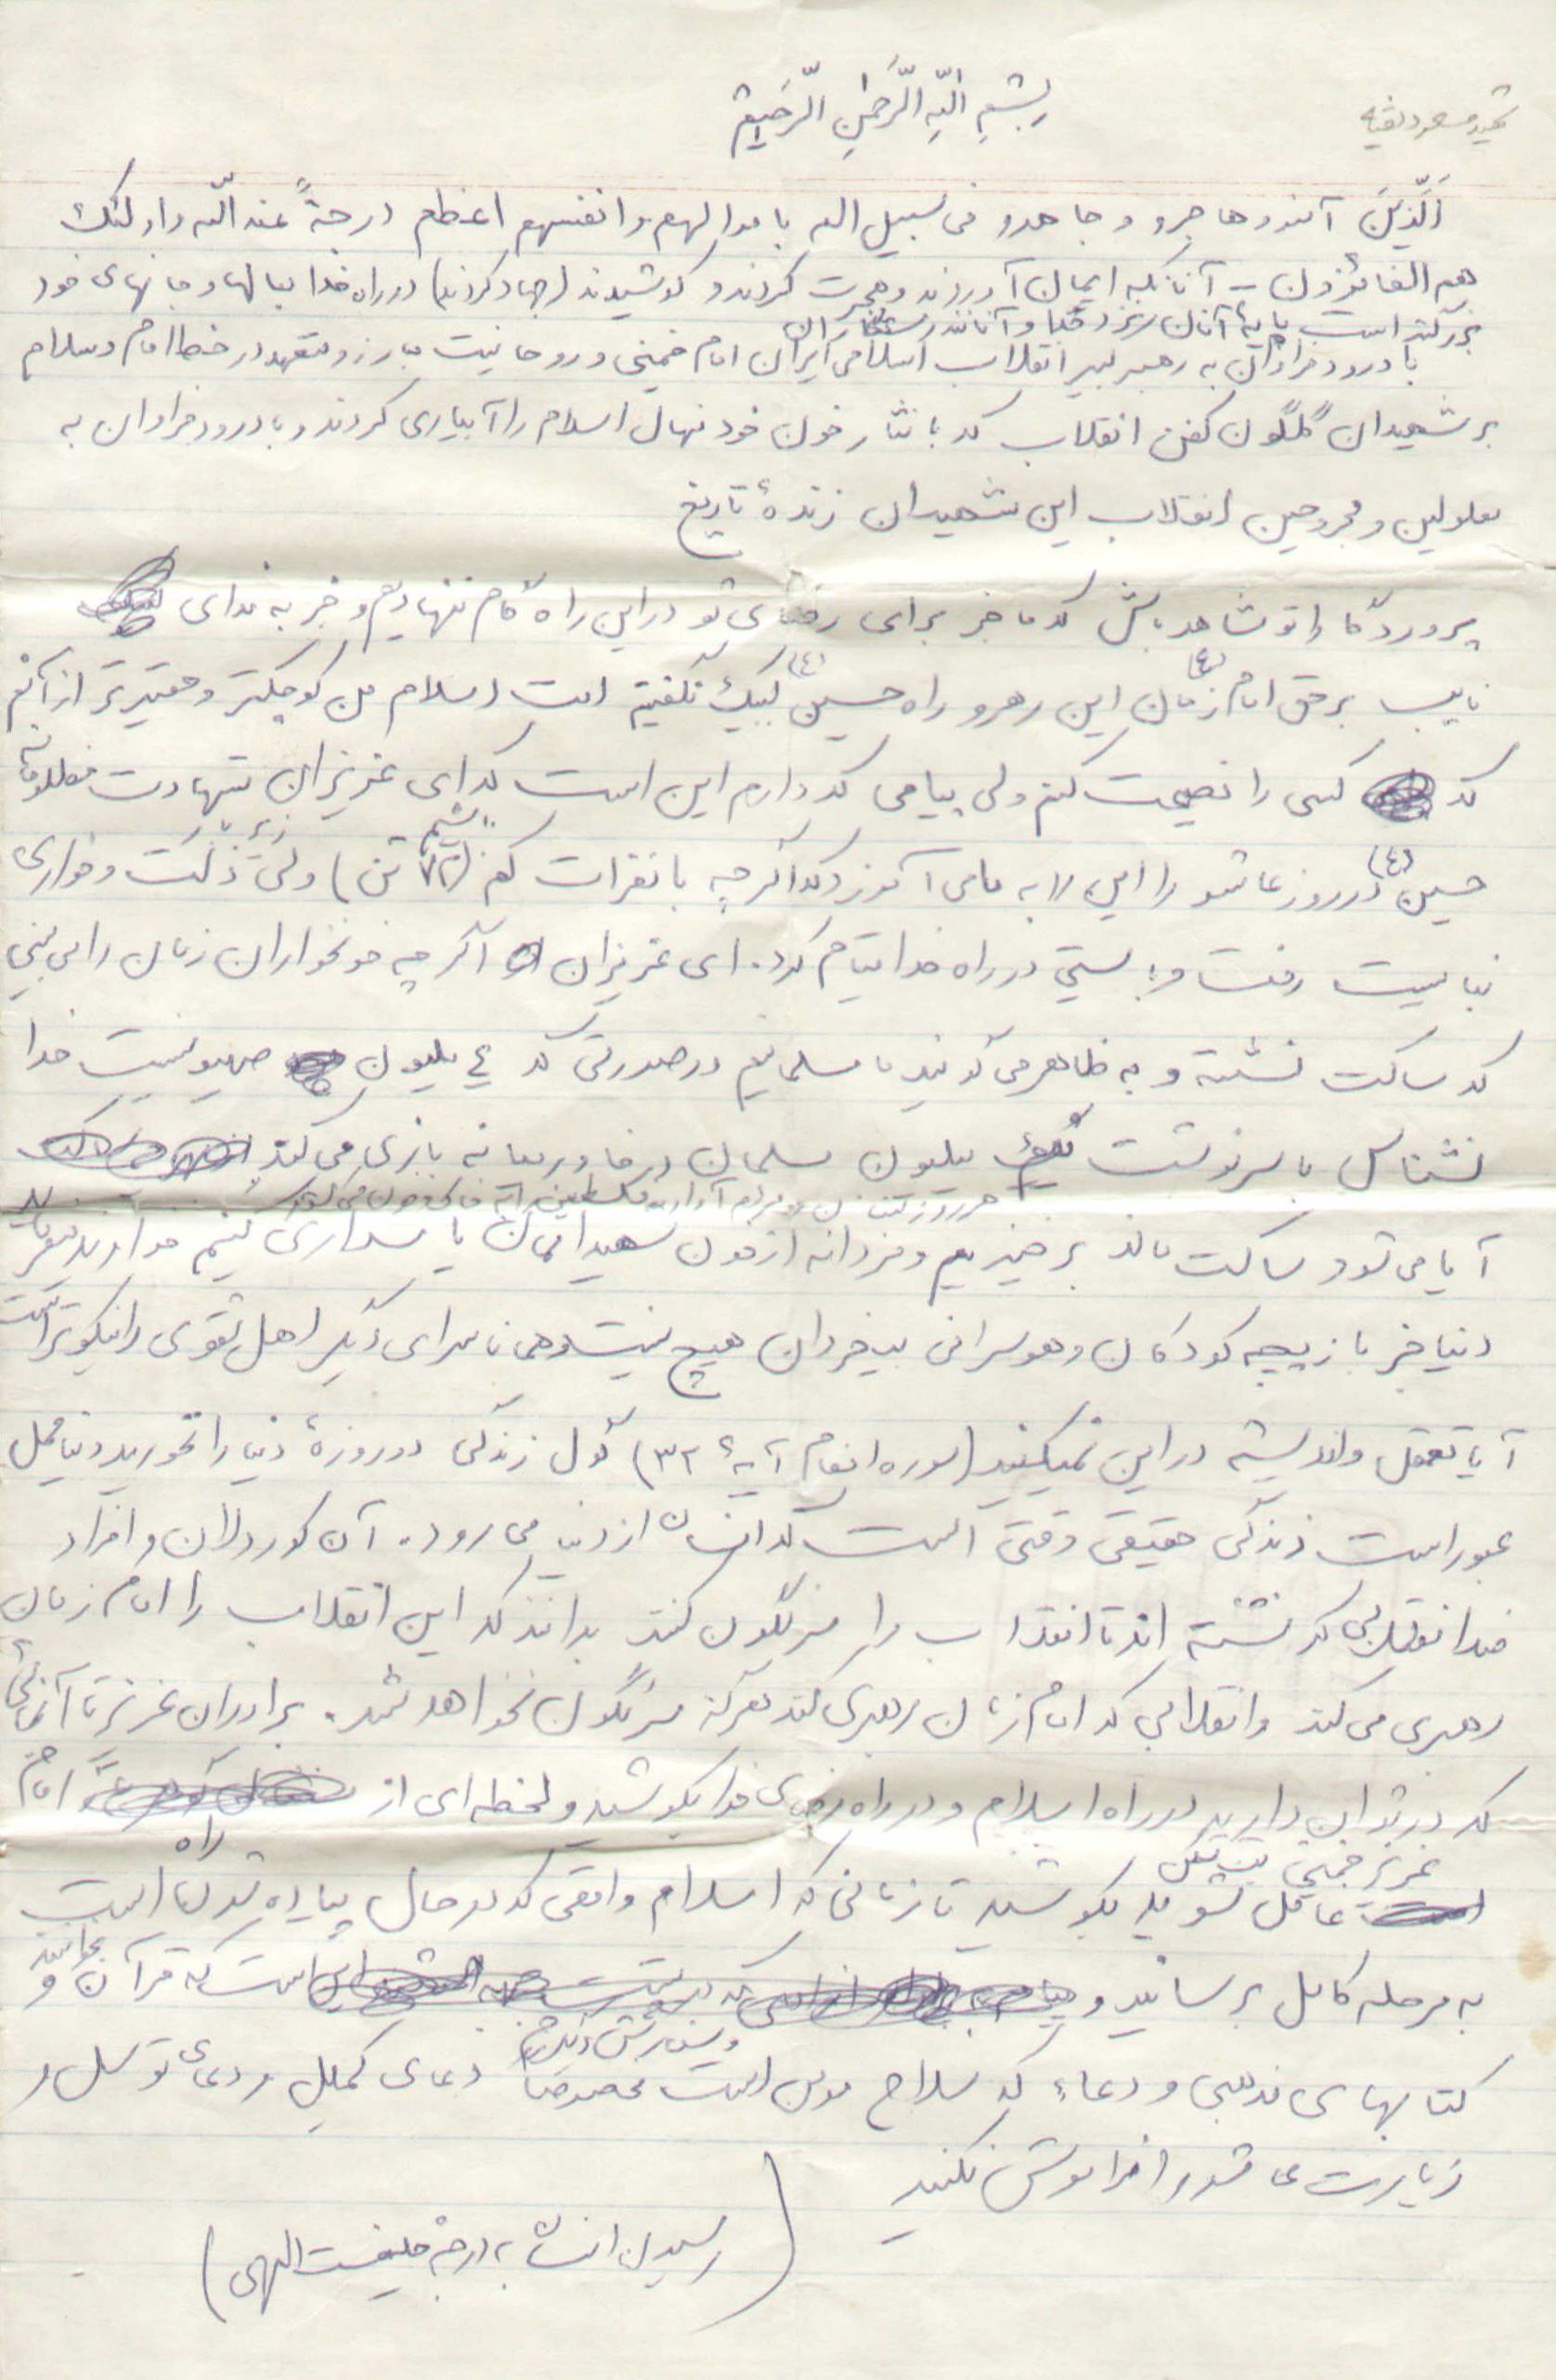 بِسْمِ اللّهِ الرَّحْمنِ الرَّحیمْ
شهید مسعود
اَلَّذینَ آمنوا و هاجرو و جاهدو فی سبیل اله باموالهم و انفسهم اعظم درجةً عند اللّه و اولئک
هم الفائزون – آنانکه ایمان آوردند و هجرت کردند و کوشیدند (جهاد کردند) در راه خدا بمالها و جانهای خود
بزرگتر است پایهٔ آنان نزد خدا و آنانند رستگاران
با درود فراوان به رهبر کبیر انقلاب اسلامی ایران امام خمینی و روحانیت مبارز و متعهد در خط امام و سلام
بر شهیدان گلگون کفن انقلاب که با نثار خون خود نهال اسلام را آبیاری کردند و با درود فراوان به
معلولین و مجروحین انقلاب این شهیدان زندهٔ تاریخ
پروردگارا تو شاهد باش که ما جز برای رضای تو در این راه گام ننهادیم و جز به ندای
نایب برحق امام زمان (ع) این رهرو راه حسین (ع) لبیک نگفتیم امت اسلام من کوچکتر و حقیرتر از آنم
که کسی را نصیحت کنم ولی پیامی که دارم این است که ای عزیزان شهادت مظلومانه
حسین (ع) در روز عاشورا این را به ما می آموزد که اگر چه با نفرات کم (۷۲ تن) باشیم ولی زیر بار ذلت و خواری
نبایست رفت و بایستی در راه خدا قیام کرد. ای عزیزان اگر چه خونخواران زمان را می بینی
که ساکت نشسته و به ظاهر می گویند ما مسلمانیم در صورتی که ٤ ملیون صهیونیست خدا
نشناس با سرنوشت ملیون مسلمان در خاورمیانه بازی می کند
هر روز مردم آواره فلسطین را به خاک و خون می کشد
آیا می شود ساکت ماند برخیزیم و مردانه از خون شهیدانمان پاسداری کنیم خداوند میفرماید
دنیا جز بازیچه کودکان و هوسرانی بیخردان هیچ نیست و همانا سرای دیگر اهل تقوی را نیکوتر است
آیا تعقل و اندیشه در این نمیکنید (سوره انعام آیهٔ ۳۲) گول زندگی دو روزهٔ دنیا را نخورید دنیا محل
عبور است زندگی حقیقی وقتی است که انسان از دنیا می رود. آن کوردلان و افراد
ضد انقلابی که نشسته اند تا انقلاب را سرنگون کنند بدانند که این انقلاب را امام زمان
رهبری می کند و انقلابی که امام زمان رهبری کند هرگز سرنگون نخواهد شد. برادران عزیز تا آنجائی
که در توان دارید در راه اسلام و در راه رضای خدا بکوشید و لحظه ای از راه امام
عزیز خمینی بت شکن غافل نشوید بکوشید تا زمانی که اسلام واقعی که در حال پیاده شدن است
به مرحله کامل برسانید و این است که قرآن بخوانید و
کتابهای مذهبی و دعا، که سلاح مومن است مخصوصاً دعای کمیل و دعای توسل و
زیارت عاشورا فراموش نکنید
(رسیدن انسان به درجهٔ خلیفت الهی)